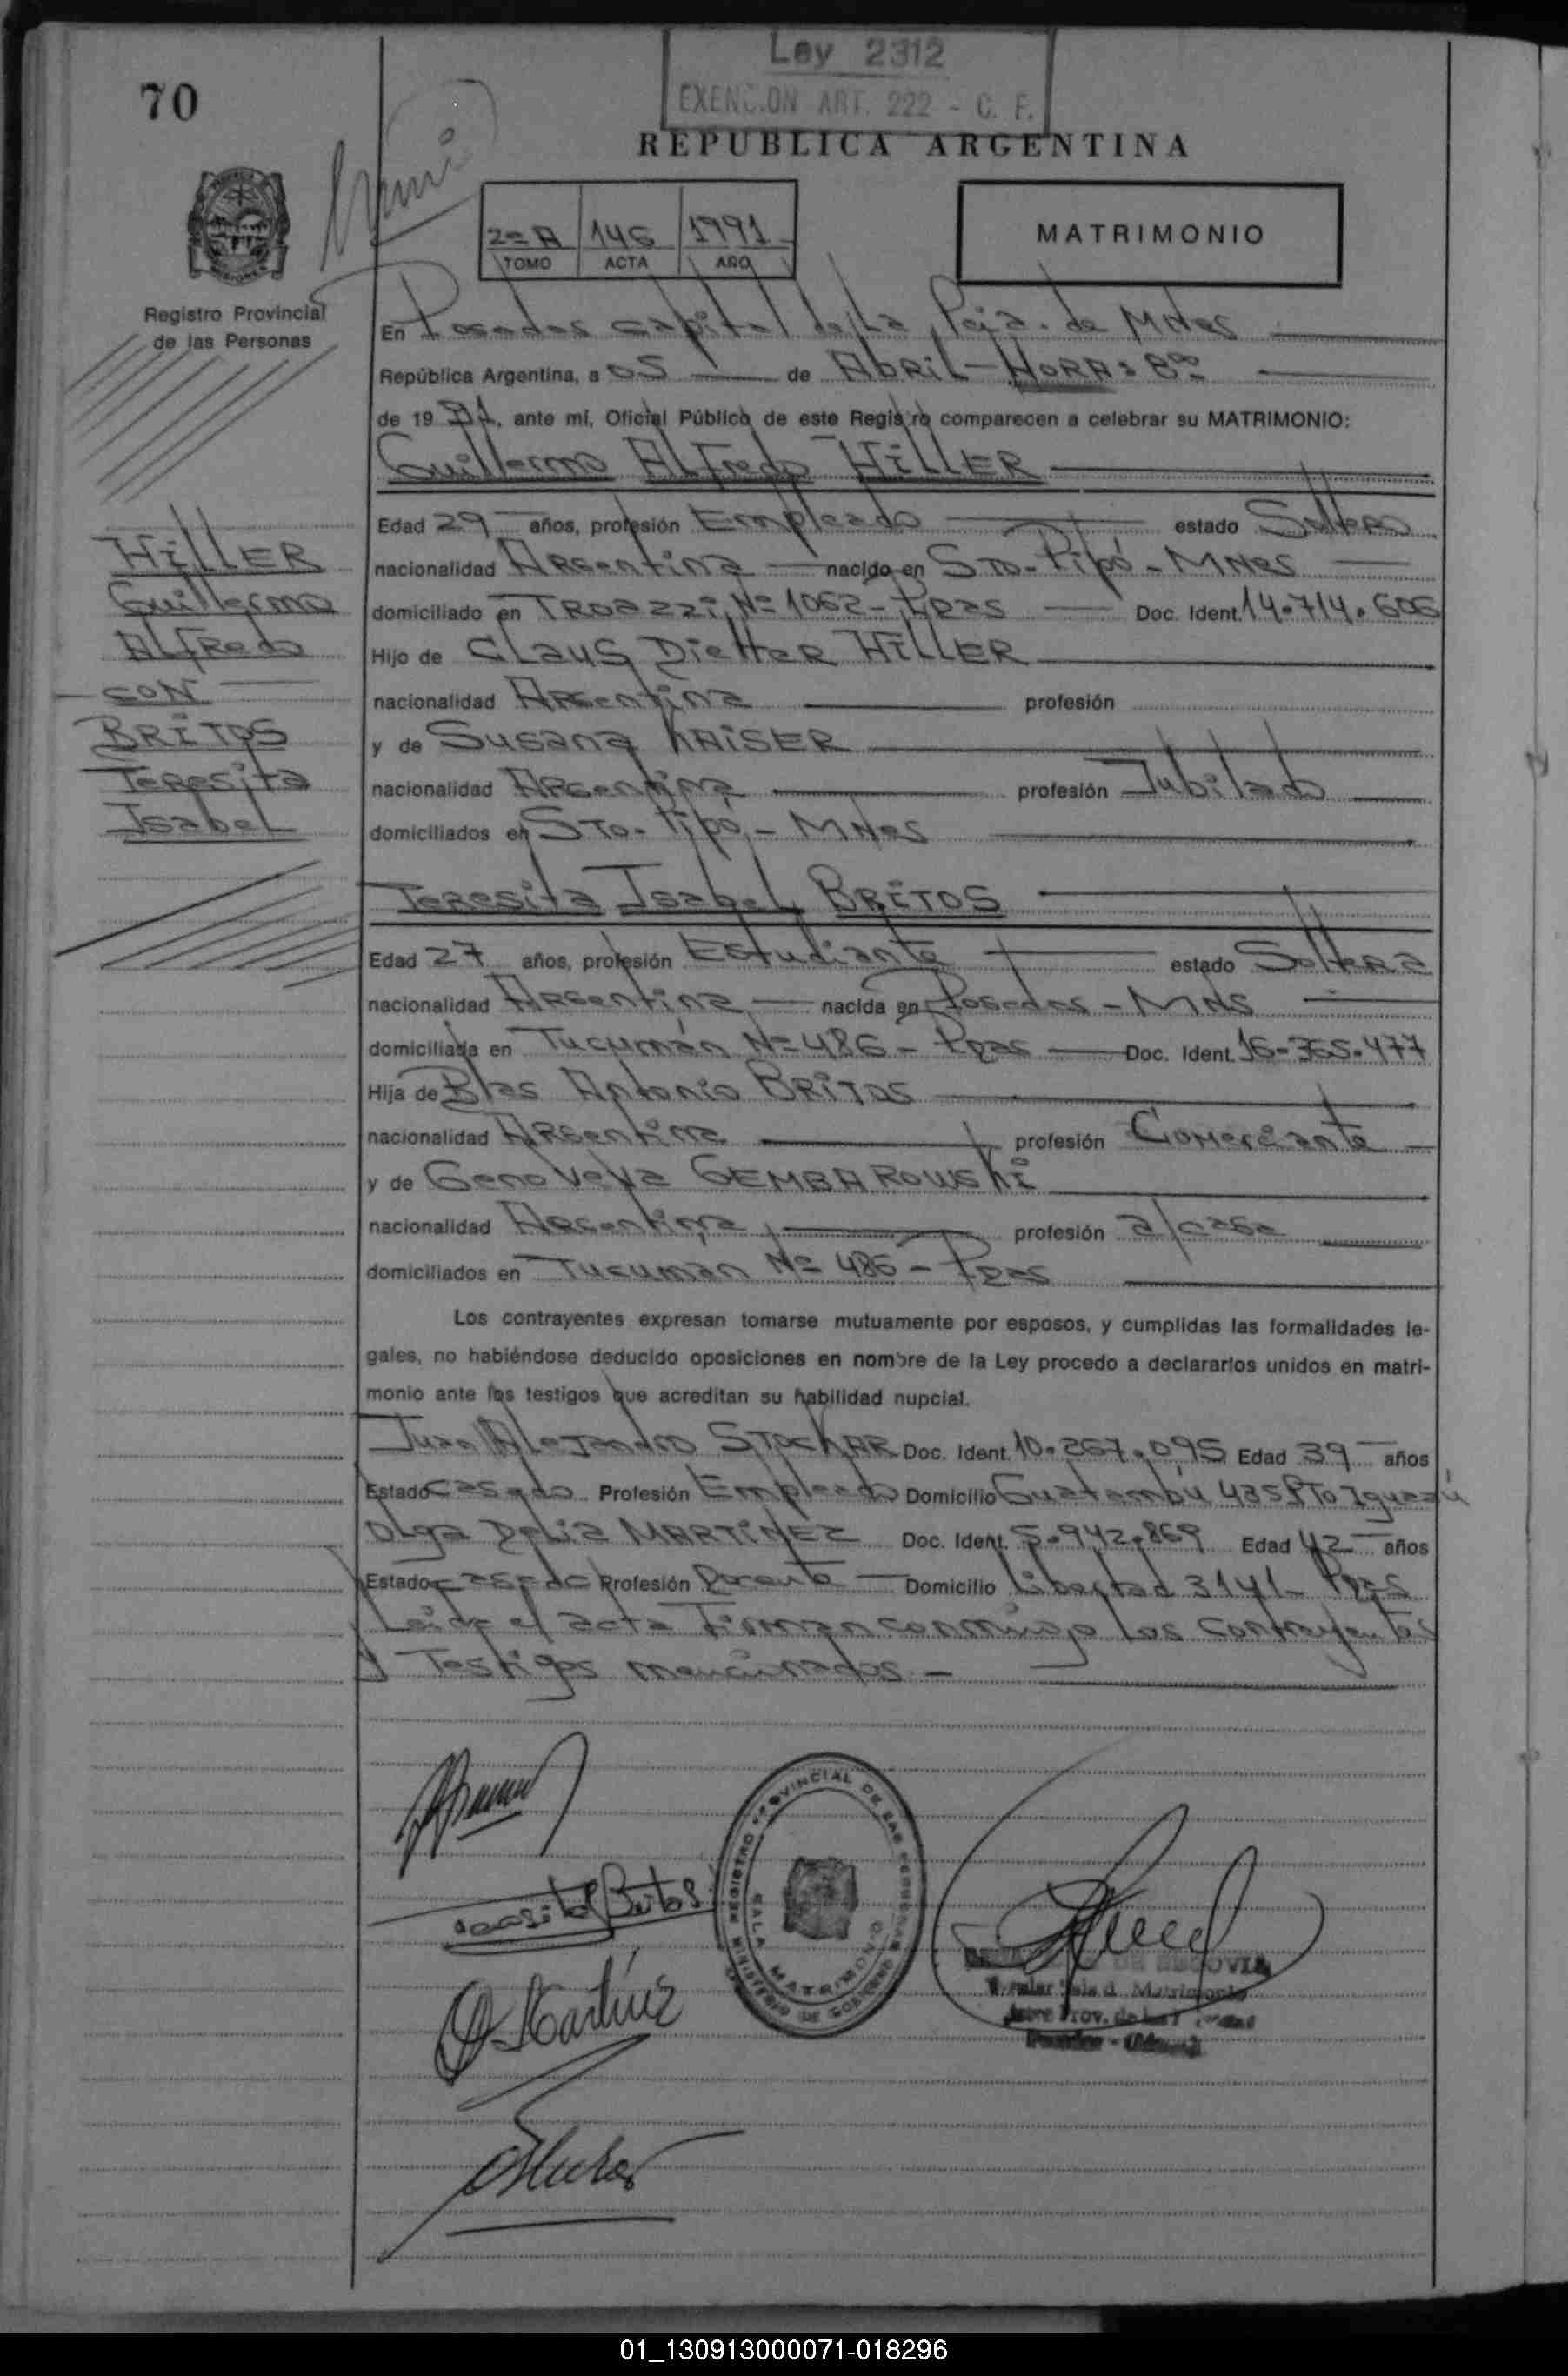 Ley 2312
EXENCION ART. 222 - C. F.
70
REPUBLICA ARGENTINA
2= A 146 1991
TOMO ACTA AÑO
MATRIMONIO
Registro Provincial
de las Personas
En Posadas capital de La Pcja. de MNes
República Argentina, a 05 de Abril - HORA: 8°°
de 1991, ante mí, Oficial Público de este Registro comparecen a celebrar su MATRIMONIO:
Guillermo Alfredo HiLLER
Edad 29 años, profesión Empleado estado Soltero
nacionalidad Argentina nacido en Sto. Pipó - MNes
domiciliado en Nº 1062 - Pdas Doc. Ident. 14.714.606
Hijo de Claus Dietter HiLLER
nacionalidad Argentina profesión
y de Susana KAiSER
nacionalidad Argentina profesión Jubilado
domiciliados en Sto. Pipó - MNes
HiLLER
Guillermo
Alfredo
CON
BRiTOS
Teresita
Isabel
Teresita Isabel BRiTOS
Edad 27 años, profesión Estudiante estado Soltera
nacionalidad Argentina nacida en Posadas - MNs
domiciliada en Tucumán Nº 486 - Pdas Doc. Ident. 16.365.477
Hija de Blas Antonio BRiTOS
nacionalidad Argentina profesión Comerciante
y de Genoveva GEMBAROWSKi
nacionalidad Argentina profesión a/casa
domiciliados en Tucuman Nº 486 - Pdas
Los contrayentes expresan tomarse mutuamente por esposos, y cumplidas las formalidades le-
gales, no habiéndose deducido oposiciones en nombre de la Ley procedo a declararlos unidos en matri-
monio ante los testigos que acreditan su habilidad nupcial.
Juan Alejandro STOCKAR Doc. Ident. 10.267.095 Edad 39 años
Estado casado Profesión Empleado Domicilio Guatambú 435 Pto Iguazú
Olga Delia MARTiNEZ Doc. Ident. 5.942.869 Edad 42 años
Estado casada Profesión Docente Domicilio Libertad 3141 - Pdas
Leida el acta Firman conmigo los contrayentes
y Testigos mencionados. -
Teresita Britos
O. Martínez
REGISTRO PROVINCIAL DE LAS PERSONAS
MINISTERIO DE GOBIERNO
SALA MATRIMONIO
DE SEGOVIA
Titular Sala d. Matrimonio
01_130913000071-018296